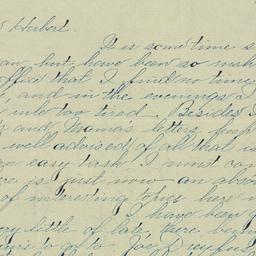 Herbert.
It is some time s
an, but have been so
office that I find no time
, and in the evenings I
too tired. Besides I
and Mama's letters keep
well advised of all that is
easy task I must con
ere is just now an abso
of interesting topics here
I have been g
ery little of late, there bein
to go to. Joe Dreyfus